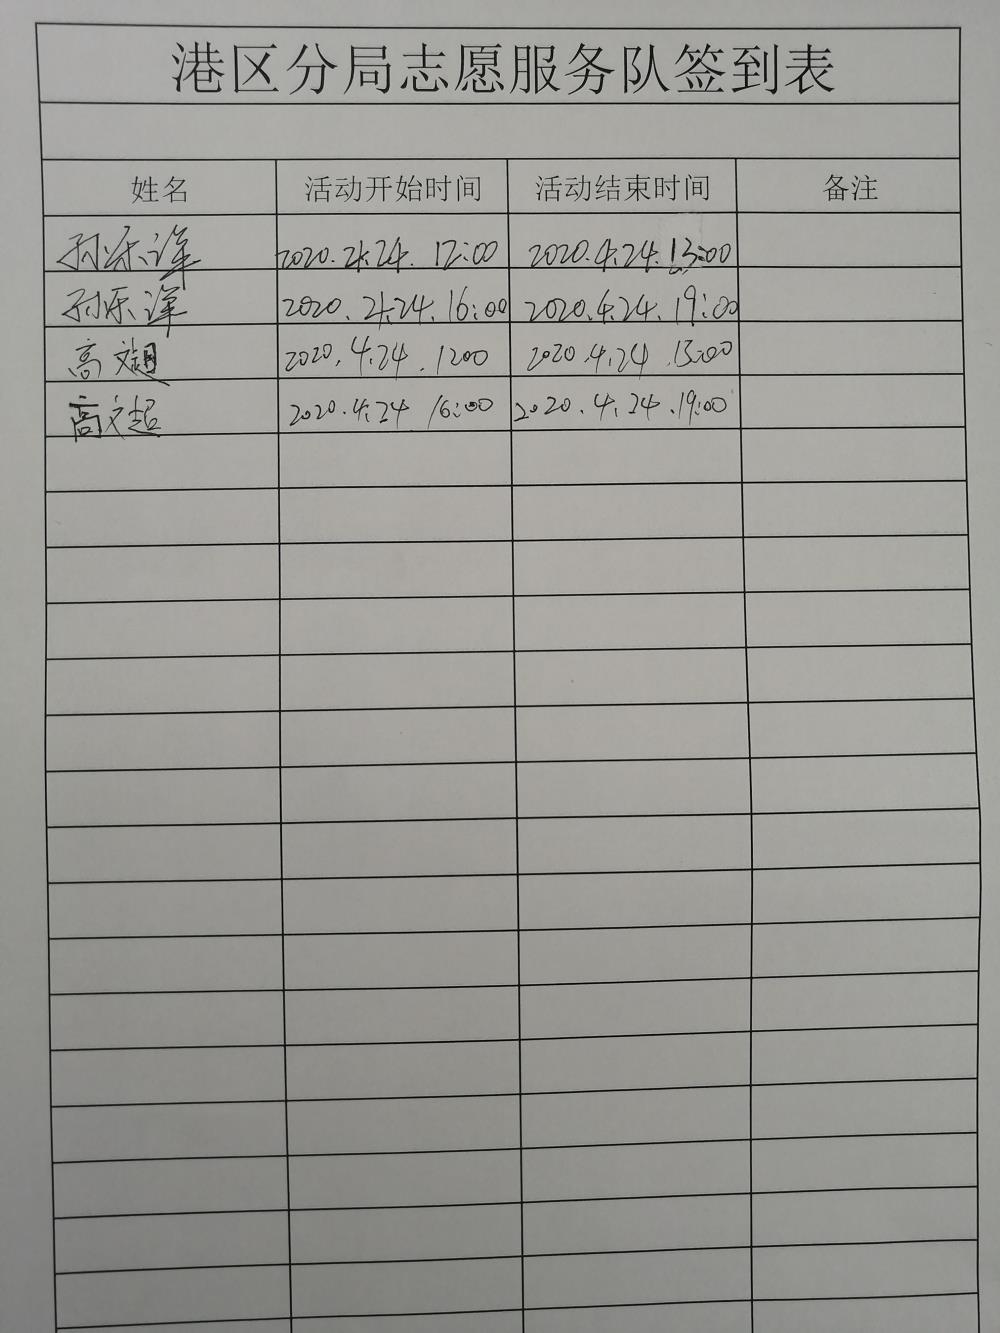 港区分局志愿服务队签到表
姓名 活动开始时间 活动结束时间 备注
孙乐洋 2020.4.24. 12:00 2020.4.24.13:00
孙乐洋 2020.4.24.16:00 2020.4.24.19:00
高文超 2020.4.24.1200 2020.4.24.13:00
高文超 2020.4.24 16:00 2020.4.24.19:00